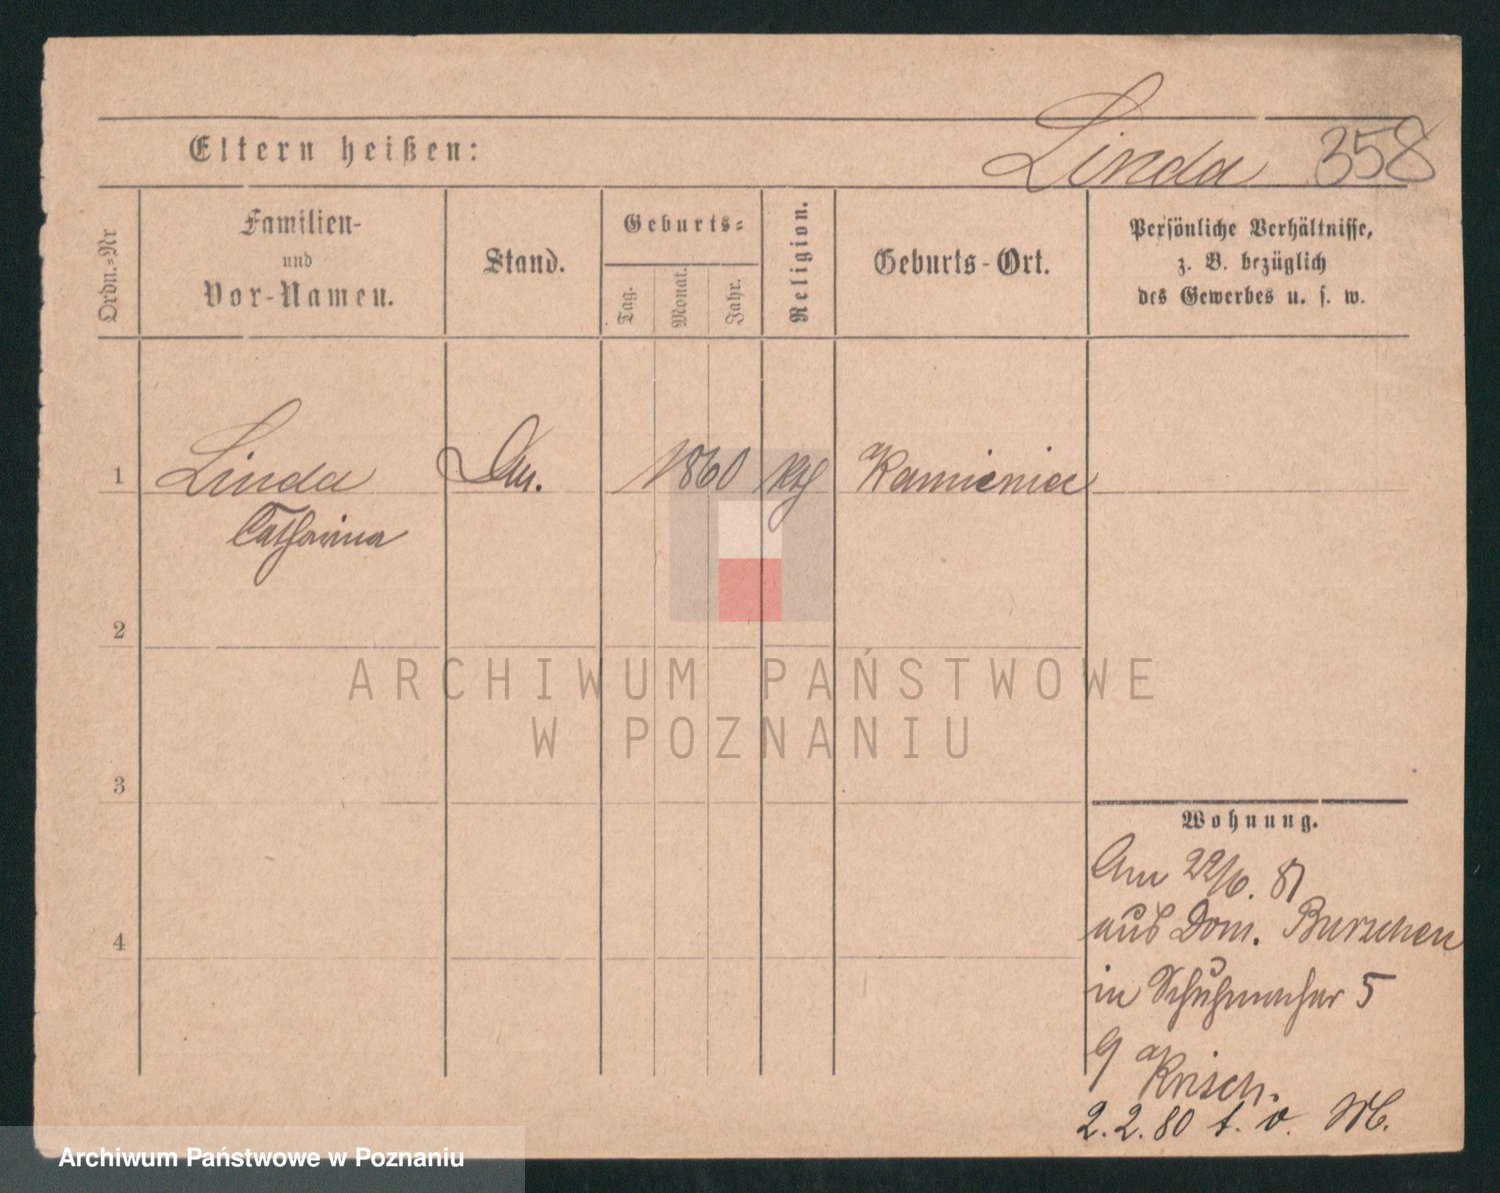 Linda 358
Eltern heißen:
Ordn.-Nr
Familien-
und
Vor-Namen.
Stand.
Geburts-
Tag.
Monat.
Jahr.
Religion.
Geburts-Ort.
Persönliche Verhältnisse,
z. B. bezüglich
des Gewerbes u. s. w.
1 Linda 1860 kth Kamieniec
Catharina
2
3
4
ARCHIWUM PAŃSTWOWE
W POZNANIU
Wohnung.
Am 22/6. 81
aus Dom. Burschen
in Schuhmacher 5
Krisch.
2.2.80 t. v. M.
Archiwum Państwowe w Poznaniu